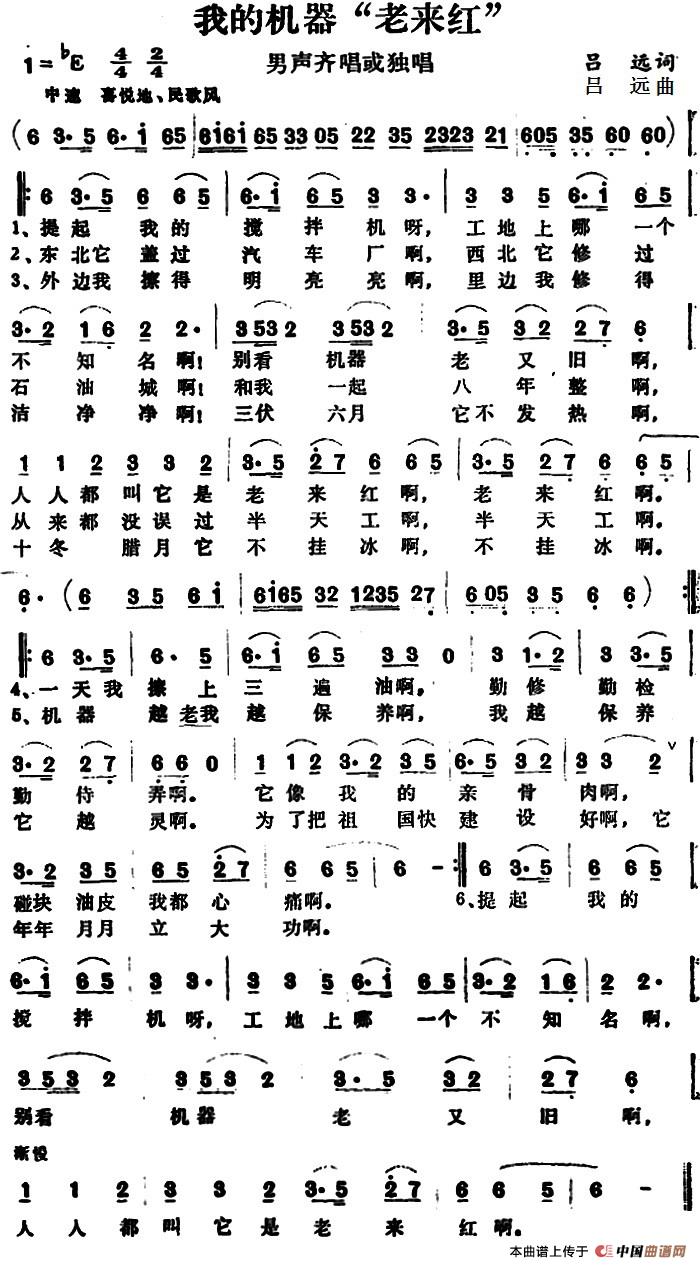 我的机器“老来红”
1=♭E 4/4 2/4 男声齐唱或独唱 吕远词
吕远曲
中速 喜悦地、民歌风
(6 3·5 6·i 65 6i6i 65 33 05 22 35 2323 21 605 35 60 60)
6 3·5 6 65 6·i 65 3 3· 3 3 5 6·i 65
1、提起我的搅拌机呀,工地上哪一个
2、东北它盖过汽车厂啊,西北它修过
3、外边我擦得明亮亮啊,里边我修得
3·2 16 2 2· 3532 3532 3·5 32 27 6
不知名啊!别看机器老又旧啊,
石油城啊!和我一起八年整啊,
洁净净啊!三伏六月它不发热啊,
1 1 2 3 3 2 3·5 27 6 65 3·5 27 6 65
人人都叫它是老来红啊,老来红啊。
从来都没误过半天工啊,半天工啊。
十冬腊月它不挂冰啊,不挂冰啊。
6·(6 35 6i 6i65 32 1235 27 605 35 6 6)
6 3·5 6·5 6·i 65 33 0 3 1·2 3 3·5
4、一天我擦上三遍油啊。勤修勤检
5、机器越老我越保养啊,我越保养
3·2 27 66 0 1 12 3·2 32 6·5 32 33 2 ∨
勤侍弄啊。它像我的亲骨肉啊,
它越灵啊。为了把祖国快建设好啊,它
3·2 35 65 27 6 65 6 - 6 3·5 6 65
碰块油皮我都心痛啊。6、提起我的
年年月月立大功啊。
6·i 65 3 3· 3 3 5 6·i 65 3·2 16 2 2·
搅拌机呀,工地上哪一个不知名啊,
3532 3532 3·5 32 27 6
别看机器老又旧啊,
渐慢
1 1 2 3 3 2 3·5 27 6 65 6 -
人人都叫它是老来红啊。
本曲谱上传于 中国曲谱网